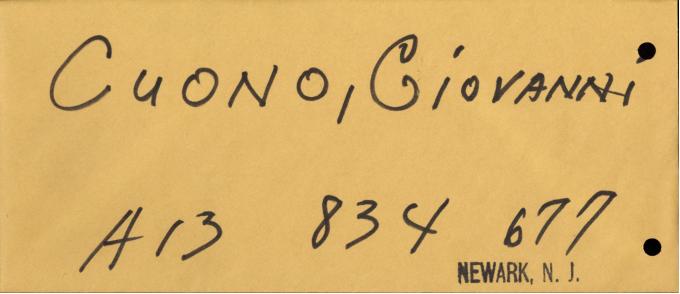 CUONO, GiOVANNi
A13 834 677
NEWARK, N. J.